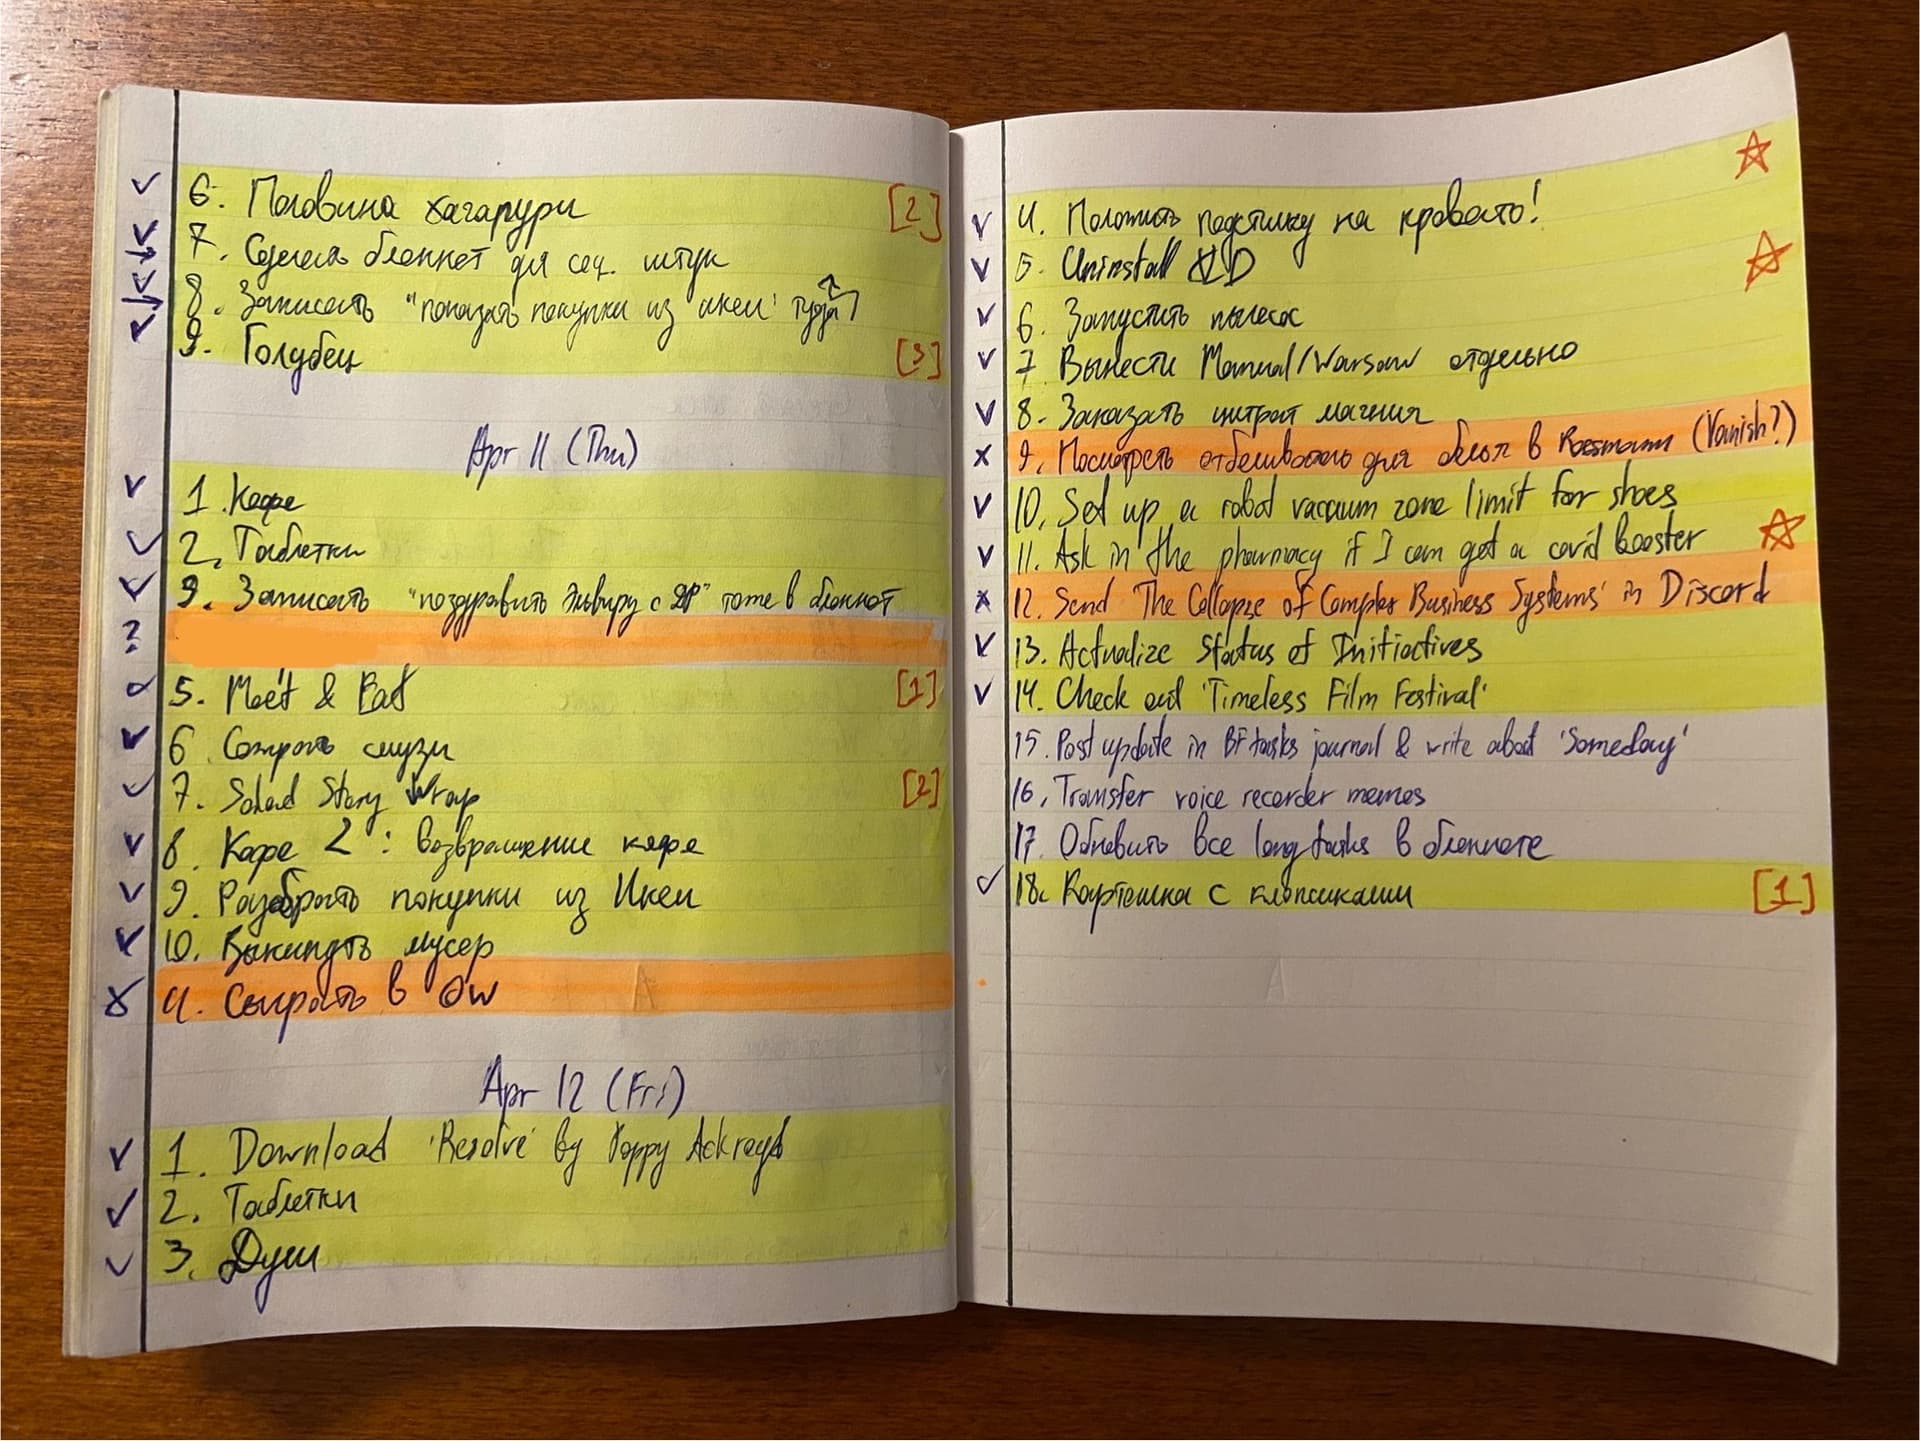 6. Половина хагапури [2]
7. Сделать блокнот для соц. штук
8. Записать "показать покупки из икеи" туда
9. Голубец [3]
Apr 11 (Thu)
1. Кофе
2. Таблетки
3. Записать "поздравить Эльвиру с ДР" тоже в блокнот
?
5. Meet & Eat [1]
6. смузи
7. Salad Story Wrap [2]
8. Кофе 2: возвращение кофе
9. Разобрать покупки из Икеи
10. Выкинуть мусор
11. Сыграть в OW
Apr 12 (Fri)
1. Download 'Resolve' by Poppy Ackroyd
2. Таблетки
3. Душ
4. Положить подстилку на кровать!
5. Uninstall
6. Запустить пылесос
7 Вынести Manual/Warsaw отдельно
8. Заказать цитрат магния
9. Посмотреть отбеливатель для белья в Rossmann (Vanish?)
10. Set up a robot vacuum zone limit for shoes
11. Ask in the pharmacy if I can get a covid booster
12. Send 'The Collapse of Complex Business Systems' in Discord
13. Actualize Status of Initiatives
14. Check out 'Timeless Film Festival'
15. Post update in BF tasks journal & write about 'Someday'
16. Transfer voice recorder memos
17. Обновить все long tasks в блокноте
18. Картошка с клопсиками [1]